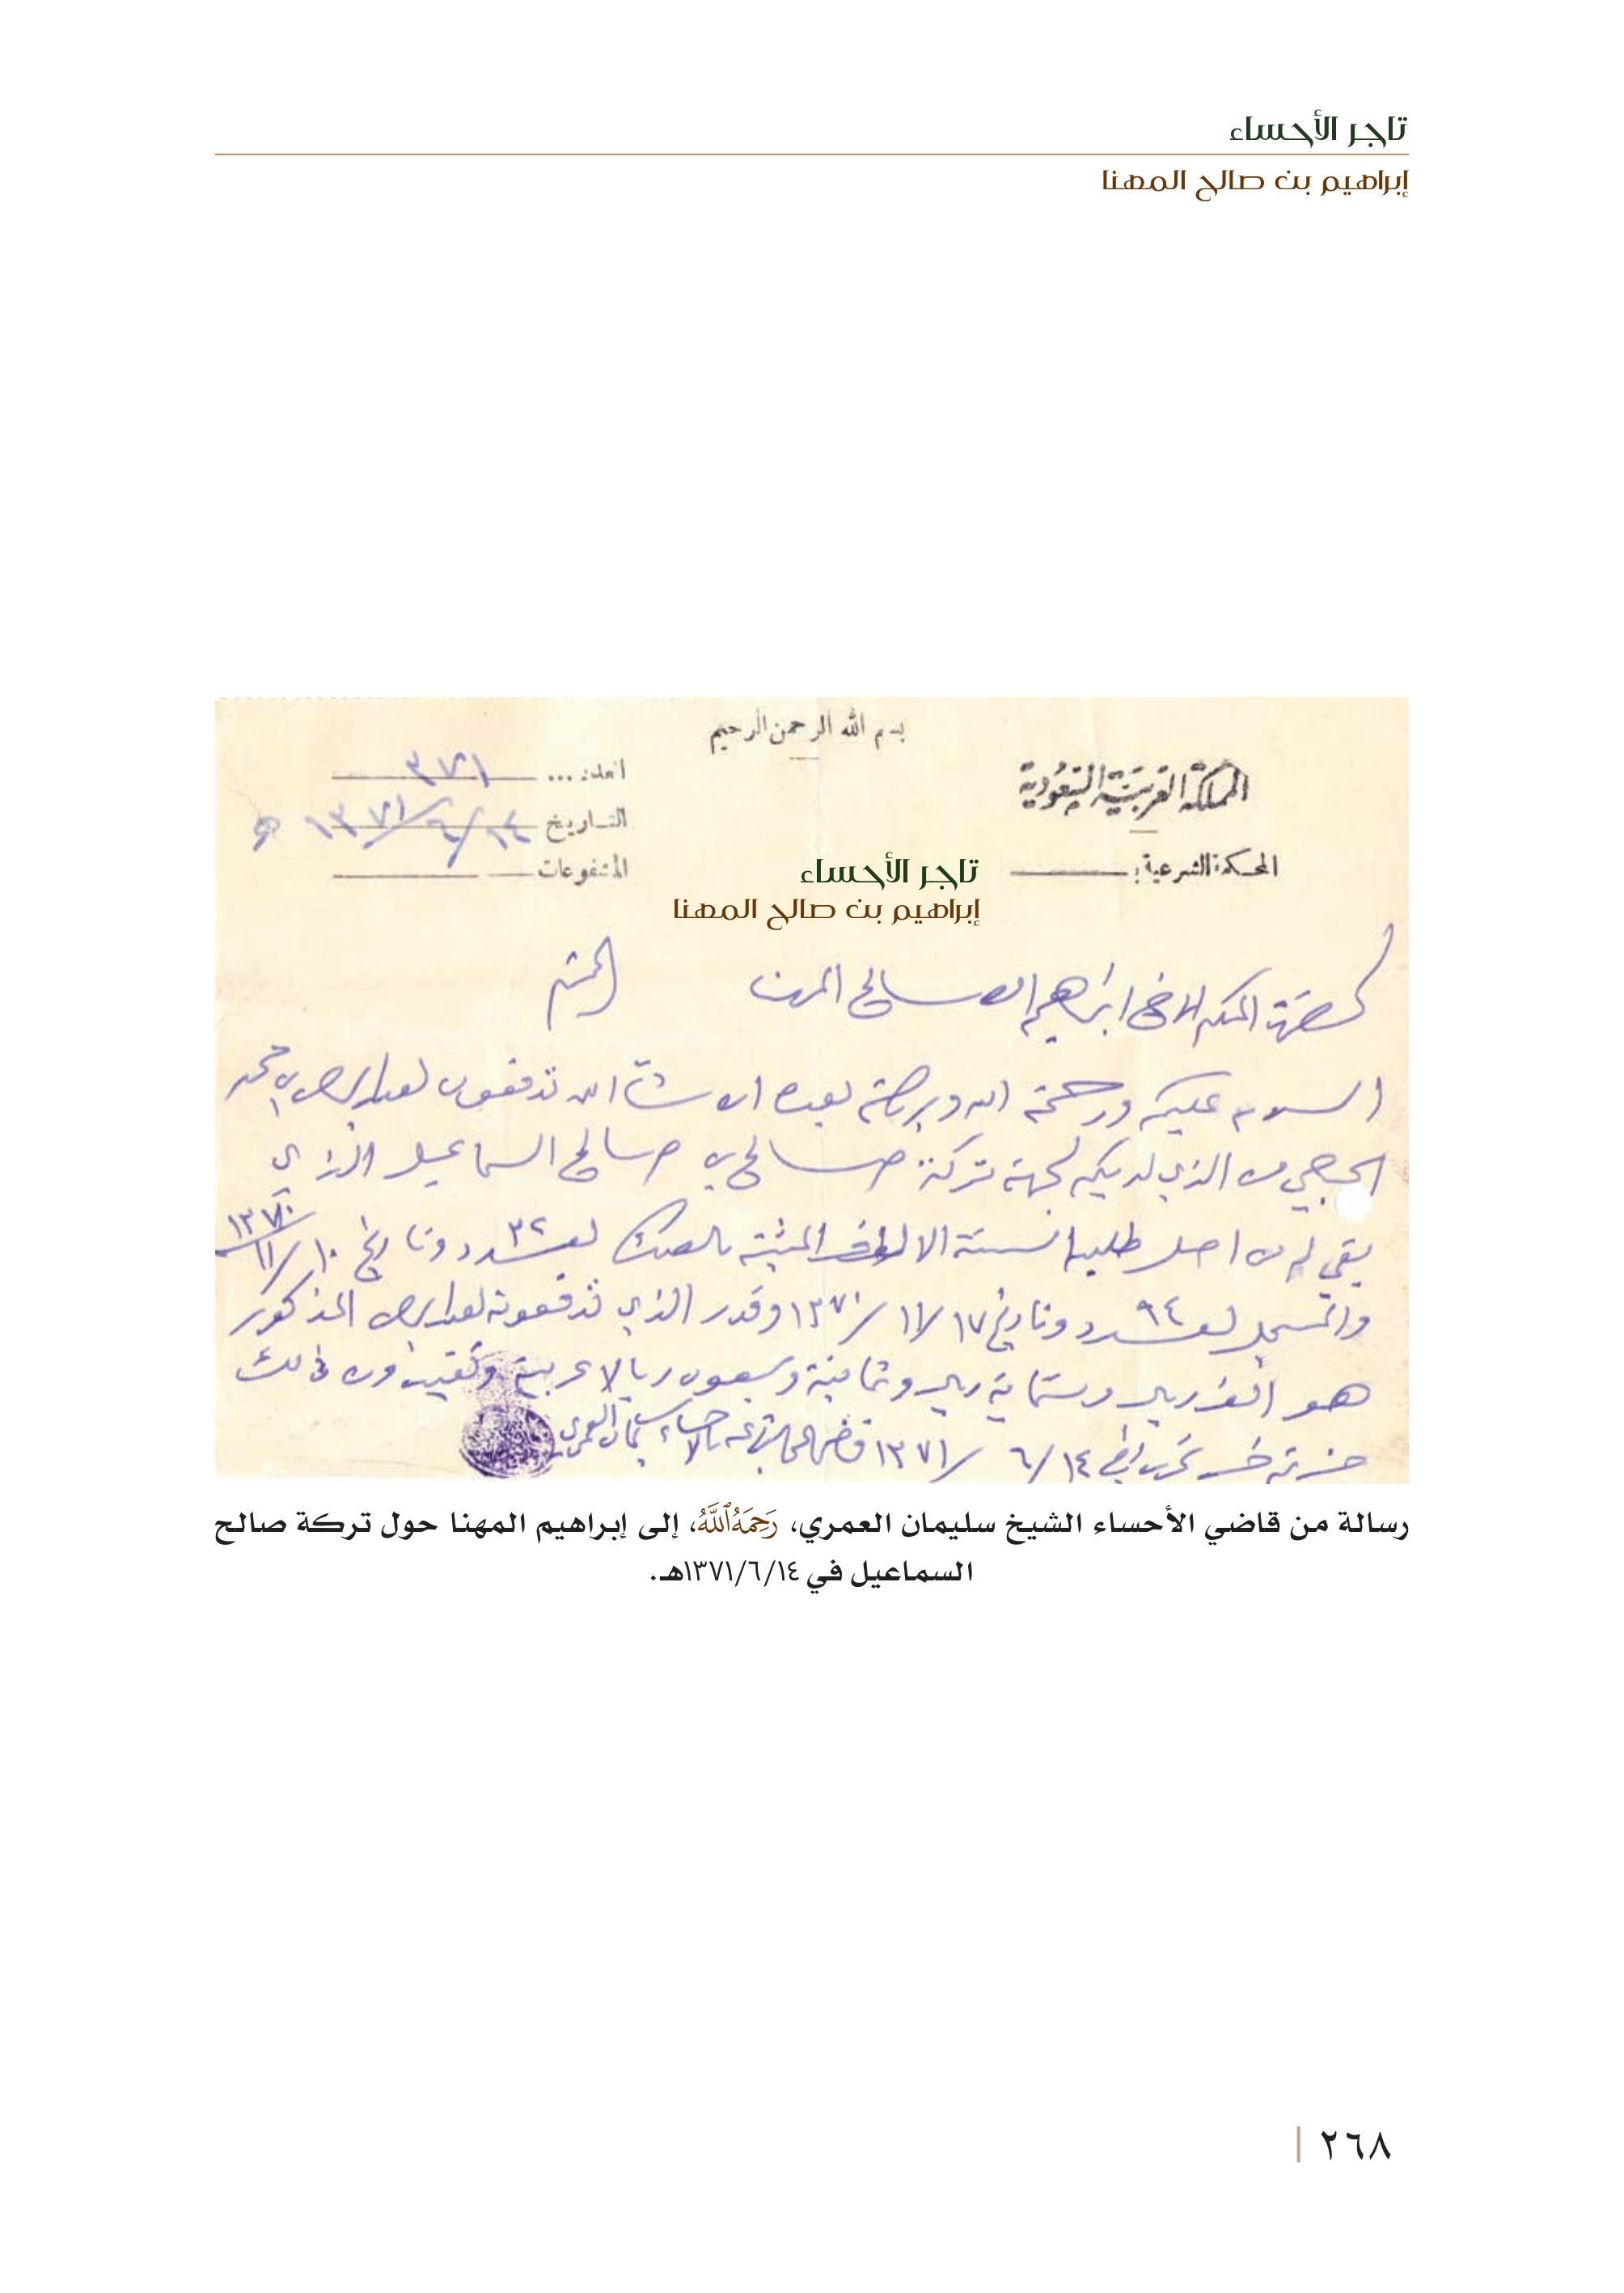 تاجر الأحساء
إبراهيم بن صالح المهنا
بسم الله الرحمن الرحيم
المملكة العربية السعودية
المحكمة الشرعية:
العدد: ... ٣٧١
التاريخ ١٤/٦/١٣٧١ هـ
المشفوعات
تاجر الأحساء
إبراهيم بن صالح المهنا
لحضرة المكرم الاخ ابراهيم الصالح المهنا المحترم
السلام عليكم ورحمة الله وبركاته بعده ان شاء الله تدفعون لعبدالرحمن بن محمد
الحجي من الذي لديكم لجهة تركة صالح بن صالح السماعيل الذي
بقي لهم من اصل طلبهم الستة الالاف المثبتة بالصك بعدد ٣٢ وتاريخ ١٠/١١/١٣٧٠
والمسجل بعدد ٩٤ وتاريخ ١٧/١١/١٣٧٠ وقدر الذي تدفعونه لعبدالرحمن المذكور
هو الف ريال وستماية ريال وثمانية وسبعون ريالا عربية من ذلك
حرر في ١٤/٦/١٣٧١ قاضي بالاحساء سليمان العمري
رسالة من قاضي الأحساء الشيخ سليمان العمري، رَحِمَهُ ٱللَّهُ، إلى إبراهيم المهنا حول تركة صالح
السماعيل في ١٣٧١/٦/١٤هـ.
٢٦٨